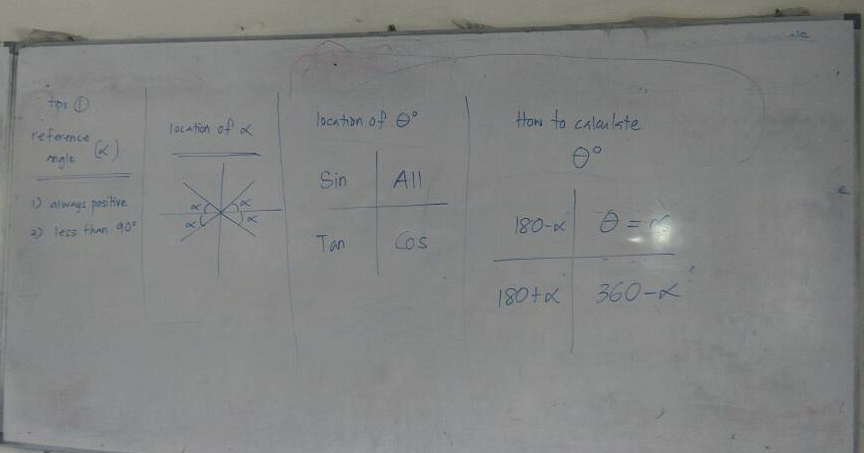 tips ①
reference
angle (α)
1) always positive
2) less than 90°
location of α
α α
α α
location of θ°
Sin All
Tan Cos
How to calculate
θ°
180-α θ = α
180+α 360-α